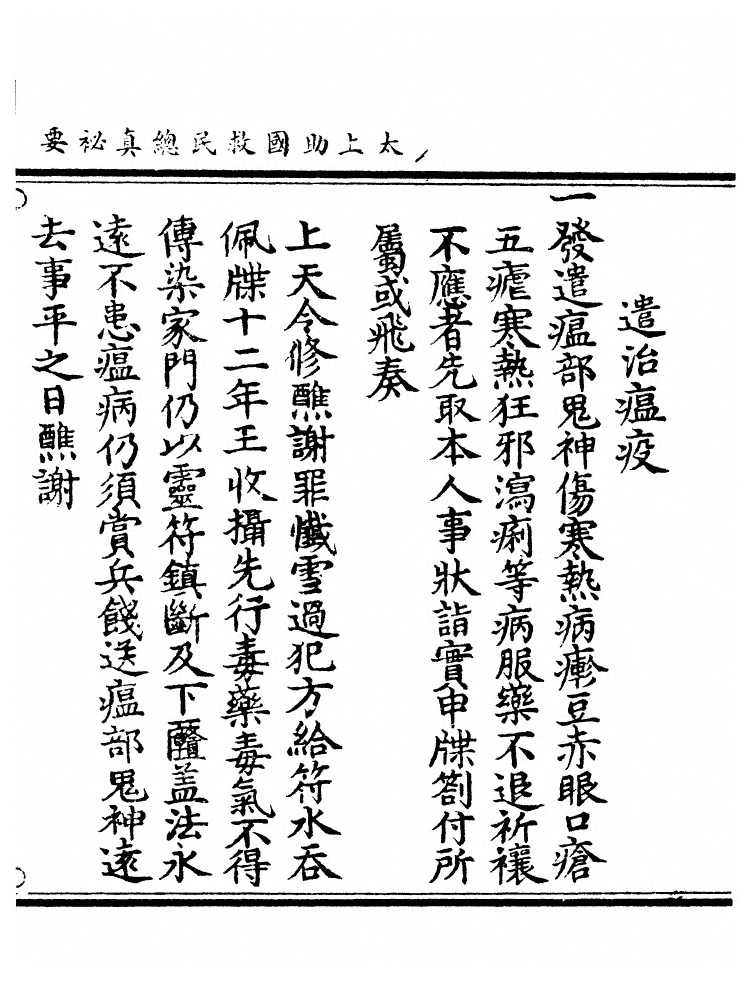 太上助國救民總真祕要
遣治瘟疫
一發遣瘟部鬼神傷寒熱病㿗豆赤眼口瘡
五瘧寒熱狂邪瀉痢等病服藥不退祈禳
不應者先取本人事狀詣實申牒劄付所
屬或飛奏
上天令修醮謝罪懺雪過犯方給符水吞
佩牒十二年王收攝先行毒藥毒氣不得
傳染家門仍以靈符鎮斷及下蓋法永
遠不患瘟病仍須賞兵餞送瘟部鬼神遠
去事平之日醮謝